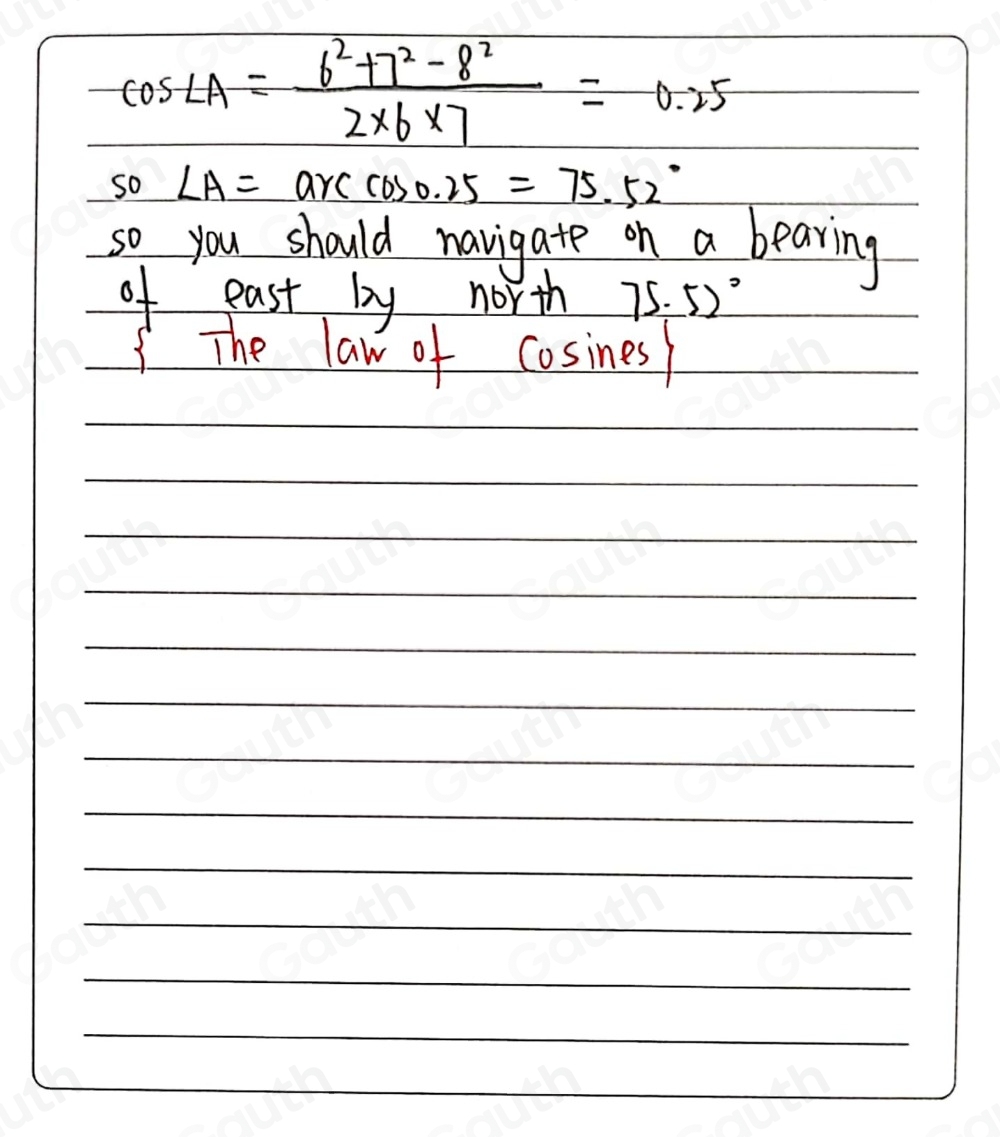 cos∠A = (6²+7²-8²)/(2×6×7) = 0.25
so ∠A = arc cos 0.25 = 75.52°
so you should navigate on a bearing
of east by north 75.52°
{ The law of Cosines}